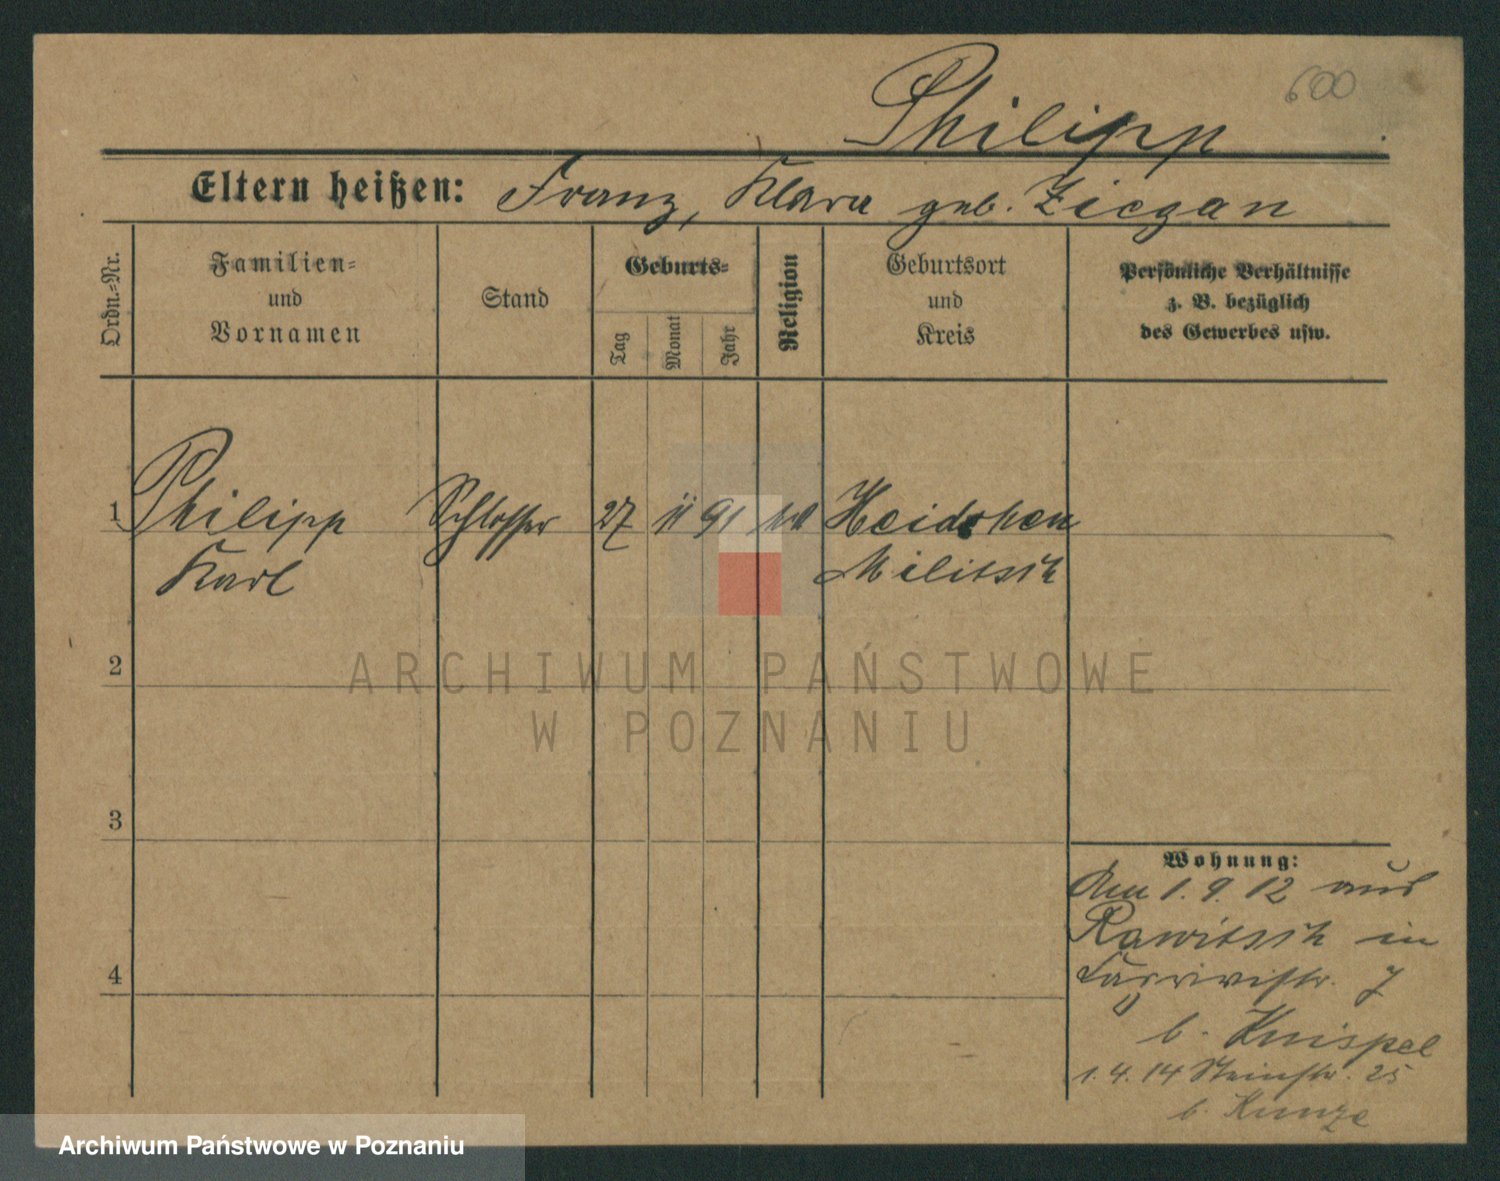 600
Philipp
Eltern heißen: Franz, Klara geb. Ziegan
Ordn.-Nr.
Familien- und Vornamen
Stand
Geburts-
Tag
Monat
Jahr
Religion
Geburtsort und Kreis
Persönliche Verhältnisse
z. B. bezüglich
des Gewerbes usw.
1 Philipp Schlosser 27 11 91
Karl Militsch
2
3
4
Wohnung:
Am 1.9.12 aus
Rawitsch in
7
b. Knispel
1.4.14 Steinstr. 25
b. Kunze
ARCHIWUM PAŃSTWOWE
W POZNANIU
Archiwum Państwowe w Poznaniu